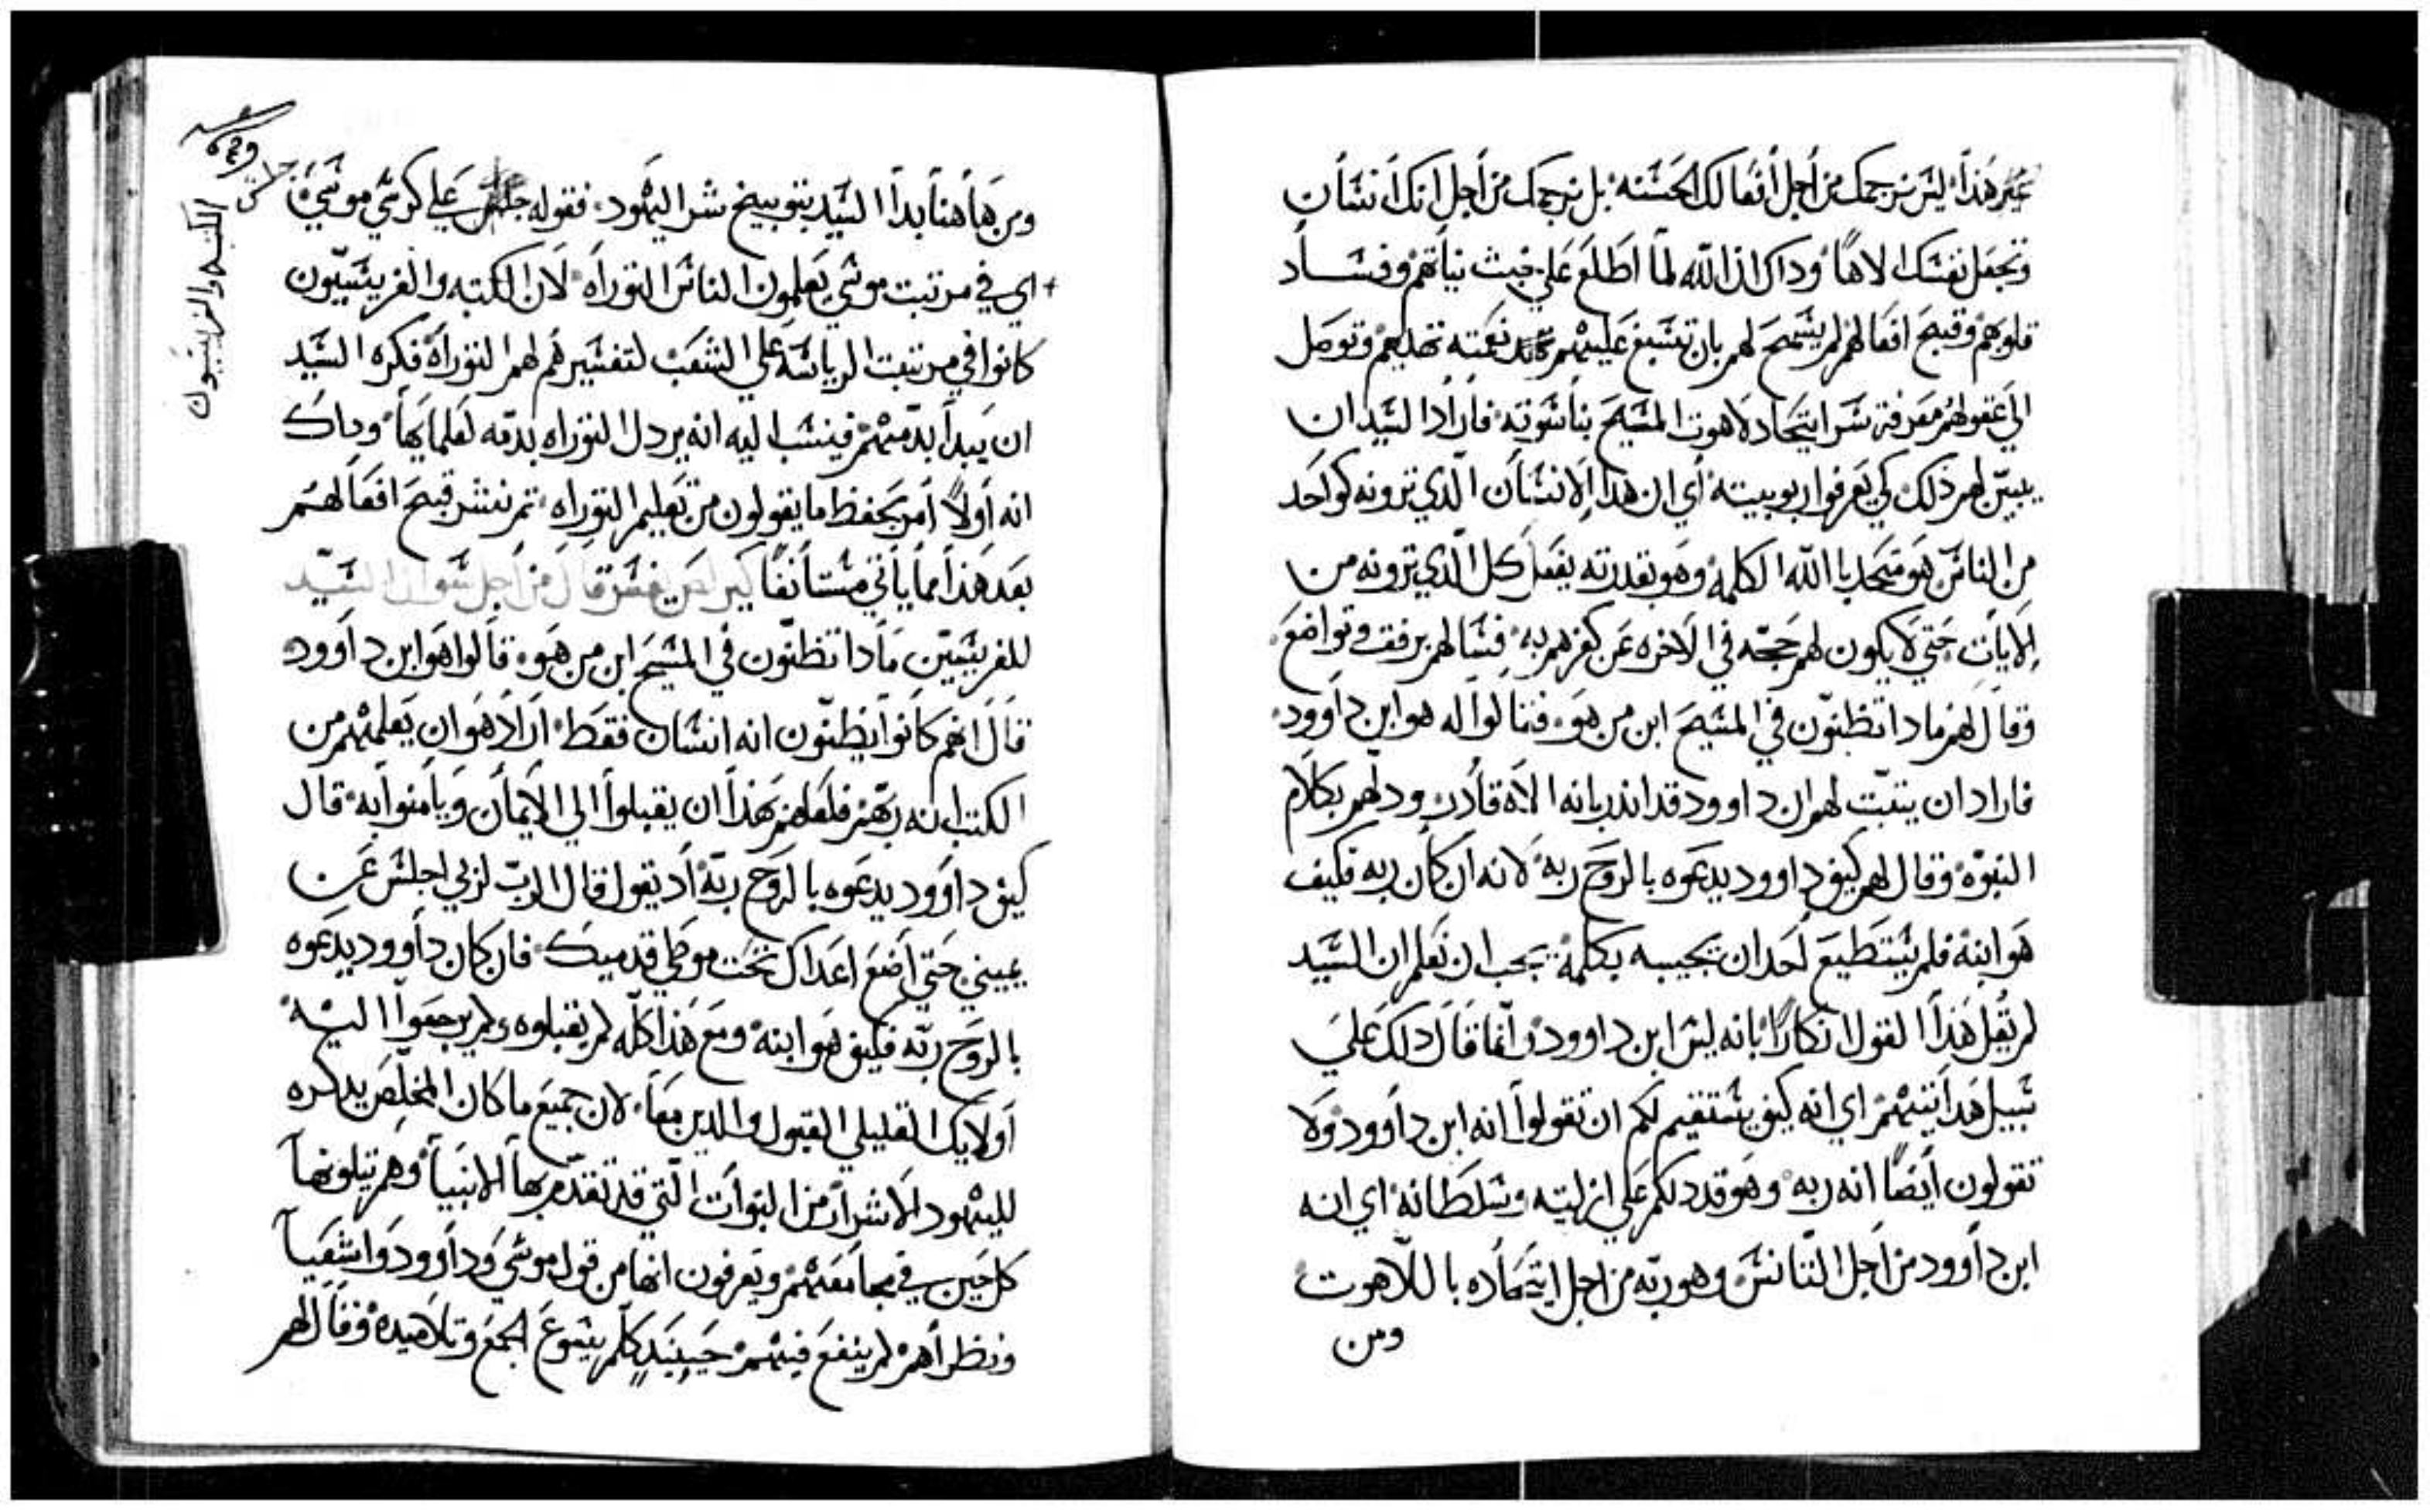 غير هذا ليس نرجمك من أجل أفعالك الحسنه بل نرجمك من أجل انك أنسان
وتجعل نفسك الاهاً وذاك ان الله لما اطلع علي خبث نياتهم وفساد
قلوبهم وقبح افعالهم لم يسمح لهم بان تسبغ عليهم نعمته تهديهم وتوصل
الي عقولهم معرفة سر اتحاد لاهوت المسيح بناسوته فاراد السيد ان
يبيّن لهم ذلك كي يعرفوا ربوبيته أي ان هذا الانسان الذي ترونه كواحد
من الناس هو متحد بالله الكلمه وهو بقدرته يفعل كل الذي ترونه من
الايات حتي لا يكون لهم حجه في الاخره عن كفرهم به فسالهم برفق وتواضع
وقال لهم مادا تظنون في المسيح ابن من هو فقالوا له هو ابن داوود
فاراد ان يتبّت لهم ان داوود قد اندر بانه الاه قادر ودلهم بكلام
النبوّه وقال لهم كيف داوود يدعوه بالروح ربه لانه ان كان ربه فكيف
هو ابنه فلم يستطيع أحد ان يجيبه بكلمه يجب ان نعلم ان السيد
لم يقل هذا القول انكاراً بانه ليس ابن داوود وانما قال ذلك علي
سبيل هدايتهم اي انه كيف يستقيم لكم ان تقولوا انه ابن داوود ولا
تقولون أيضاً انه ربه وهو قد دلكم علي ازليته وسلطانه اي انه
ابن داوود من أجل التانس وهو ربّه من اجل اتحاده باللاهوت
ومن
ومن هاهنا بدا السيد بتوبيخ شر اليهود فقوله جلس علي كرسي موسي
اي في مرتبت موسي يعلمون الناس التوراه لان الكتبه والفريسيّون
كانوا في مرتبت الرياسه علي الشعب لتفسيرهم لهم التوراه فكره السيد
ان يبدا بدّمهم فينسب اليه انه يردل التوراه بدمّه لعلمايها وداك
انه أولاً أمر بحفظ ما يقولون من تعليم التوراه ثم نشر قبح افعالهم
بعد هذا مما يأتي مستأنفاً قال من أجل سوال السيد
للفريسيّين مادا تظنّون في المسيح ابن من هو قالوا هو ابن داوود
قال انهم كانوا يظنّون انه انسان فقط اراد هو ان يعلمهم من
الكتب انه ربّهم فلعلهم بهذا ان يقبلوا الي الايمان ويامنوا به قال
كيف داوود يدعوه بالروح ربّه اد يقول قال الرب لربي اجلس عن
يميني حتي أضع اعداك تحت موطي قدميك فان كان داوود يدعوه
بالروح ربّه فكيف هو ابنه ومع هذا كلّه لم يقبلوه ولم يرجعوا اليه
أولايك القليلي القبول والدين معاً لان جميع ما كان المخلّص يدكره
لليهود الاشرار من النبوات التي قد تقدّم بها الانبيا وهم يتلونها
كل حين في مجامعهم ويعرفون انها من قول موسي وداوود واشعيا
ونظراهم لم ينفع فيهم حينيدٍ كلّم يسوع الجمع وتلاميده وقال لهم
جلس
الكتبه والفريسيون